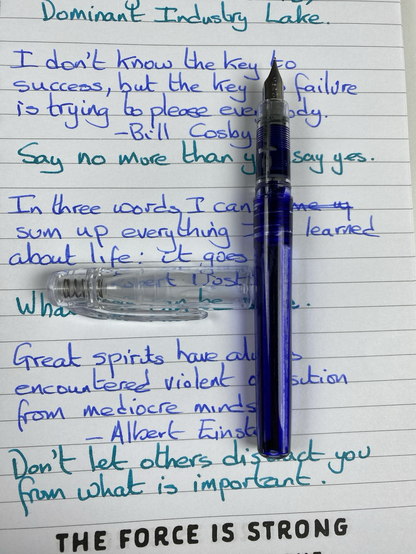 Dominant Industry Lake.
I don't know the key to
success, but the key failure
is trying to please
-Bill Cosby
Say no more than say yes.
In three words I can
sum up everything I learned
about life: it goes
Great spirits have
encountered violent
from mediocre minds
- Albert
Don't let others you
from what is important.
THE FORCE IS STRONG